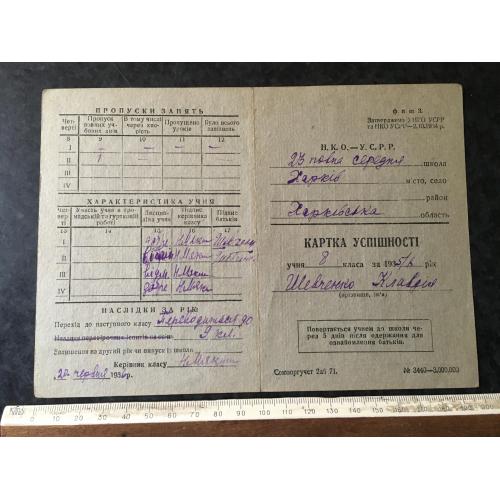 ПРОПУСКИ ЗАНЯТЬ
Чет-верті
Пропуск повних учбових днів
В тому числі через хворість
Пропущено уроків
Було всього запізнень
8 9 10 11 12
I — — — —
II 1
III
IV
ХАРАКТЕРИСТИКА УЧНЯ
Чет-верті
Участь учня в громадській та гуртковій роботі
Дисципліна учня
Підпис керівника класу
Підпис батьків
13 14 15 16 17
I добре
II
III відм.
IV добре
НАСЛІДКИ ЗА РІК
Перехід до наступного класу Переводиться до
9 кл.
Залишення на другий рік чи випуск із школи
Керівник класу
„20“ червня 1936 р.
Форма 3.
Затверджено НКО УСРР
та НКО УСРР—2.III1934 р.
Н.К.О.—У.С.Р.Р.
23 повна середня школа
Харків місто, село
район
Харківська область
КАРТКА УСПІШНОСТІ
учня 8 класа за 1935/6 рік
Шевченко Клавдія
(прізвище, ім'я)
Повертається учнем до школи через 5 днів після одержання для ознайомлення батьків.
Союзоргучет 2зб 71.
№ 3440—3.000.000